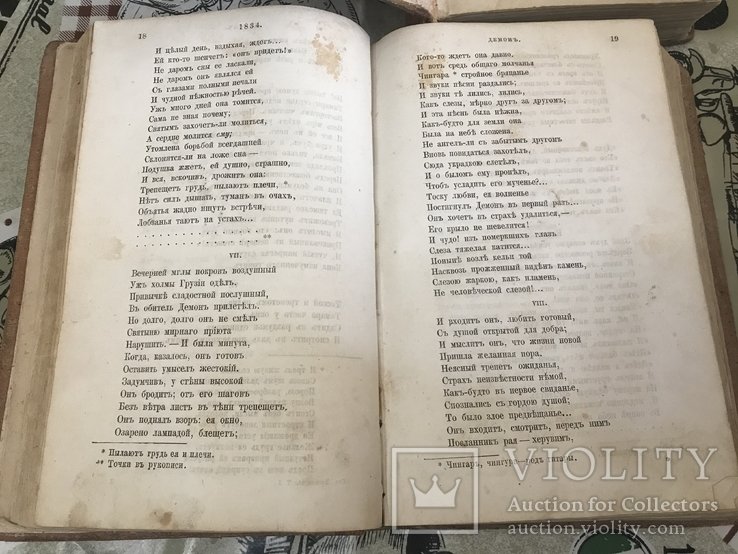 18
1834.
И цѣлый день, вздыхая, ждетъ...
Ей кто-то шепчетъ: «онъ придетъ!»
Не даромъ сны ее ласкали,
Не даромъ онъ являлся ей
Съ глазами полными печали
И чудной нѣжностью рѣчей.
Ужъ много дней она томится,
Сама не зная почему;
Святымъ захочетъ-ли молиться,
А сердце молится ему;
Утомлена борьбой всегдашней
Склонится-ли на ложе сна —
Подушка жжетъ, ей душно, страшно,
И вся, вскочивъ, дрожитъ она:
Трепещетъ грудь, пылаютъ плечи, *
Нѣтъ силъ дышать, туманъ въ очахъ,
Объятья жадно ищутъ встрѣчи,
Лобзанья таютъ на устахъ...
. . . . . . . . . . . . . . . . . . . . **
VII.
Вечерней мглы покровъ воздушный
Ужъ холмы Грузіи одѣлъ.
Привычкѣ сладостной послушный,
Въ обитель Демонъ прилетѣлъ.
Но долго, долго онъ не смѣлъ
Святыню мирнаго пріюта
Нарушить. — И была минута,
Когда, казалось, онъ готовъ
Оставить умыселъ жестокій.
Задумчивъ, у стѣны высокой
Онъ бродитъ; отъ его шаговъ
Безъ вѣтра листъ въ тѣни трепещетъ.
Онъ поднялъ взоръ: ея окно,
Озарено лампадой, блещетъ;
* Пылаютъ грудь ея и плечи.
** Точки въ рукописи.
ДЕМОНЪ.
19
Кого-то ждетъ она давно.
И вотъ средь общаго молчанья
Чингара * стройное бряцанье
И звуки пѣсни раздались;
И звуки тѣ лились, лились,
Какъ слезы, мѣрно другъ за другомъ;
И эта пѣснь была нѣжна,
Какъ-будто для земли она
Была на небѣ сложена.
Не ангелъ-ли съ забытымъ другомъ
Вновь повидаться захотѣлъ,
Сюда украдкою слетѣлъ,
И о быломъ ему пропѣлъ,
Чтобъ усладить его мученье?...
Тоску любви, ея волненье
Постигнулъ Демонъ въ первый разъ...
Онъ хочетъ въ страхѣ удалиться, —
Его крыло не шевелится!
И чудо! изъ померкшихъ глазъ
Слеза тяжелая катится...
Понынѣ возлѣ кельи той
Насквозь прожженный видѣнъ камень,
Слезою жаркою, какъ пламень,
Не человѣческой слезой!...
VIII.
И входитъ онъ, любить готовый,
Съ душой открытой для добра;
И мыслитъ онъ, что жизни новой
Пришла желанная пора.
Неясный трепетъ ожиданья,
Страхъ неизвѣстности нѣмой,
Какъ-будто въ первое свиданье,
Спознались съ гордою душой;
То было злое предвѣщанье...
Онъ входитъ, смотритъ, передъ нимъ
Посланникъ рая — херувимъ,
* Чингаръ, чингура — родъ гитары.
VIOLITY
Auction for Collectors
auction.violity.com